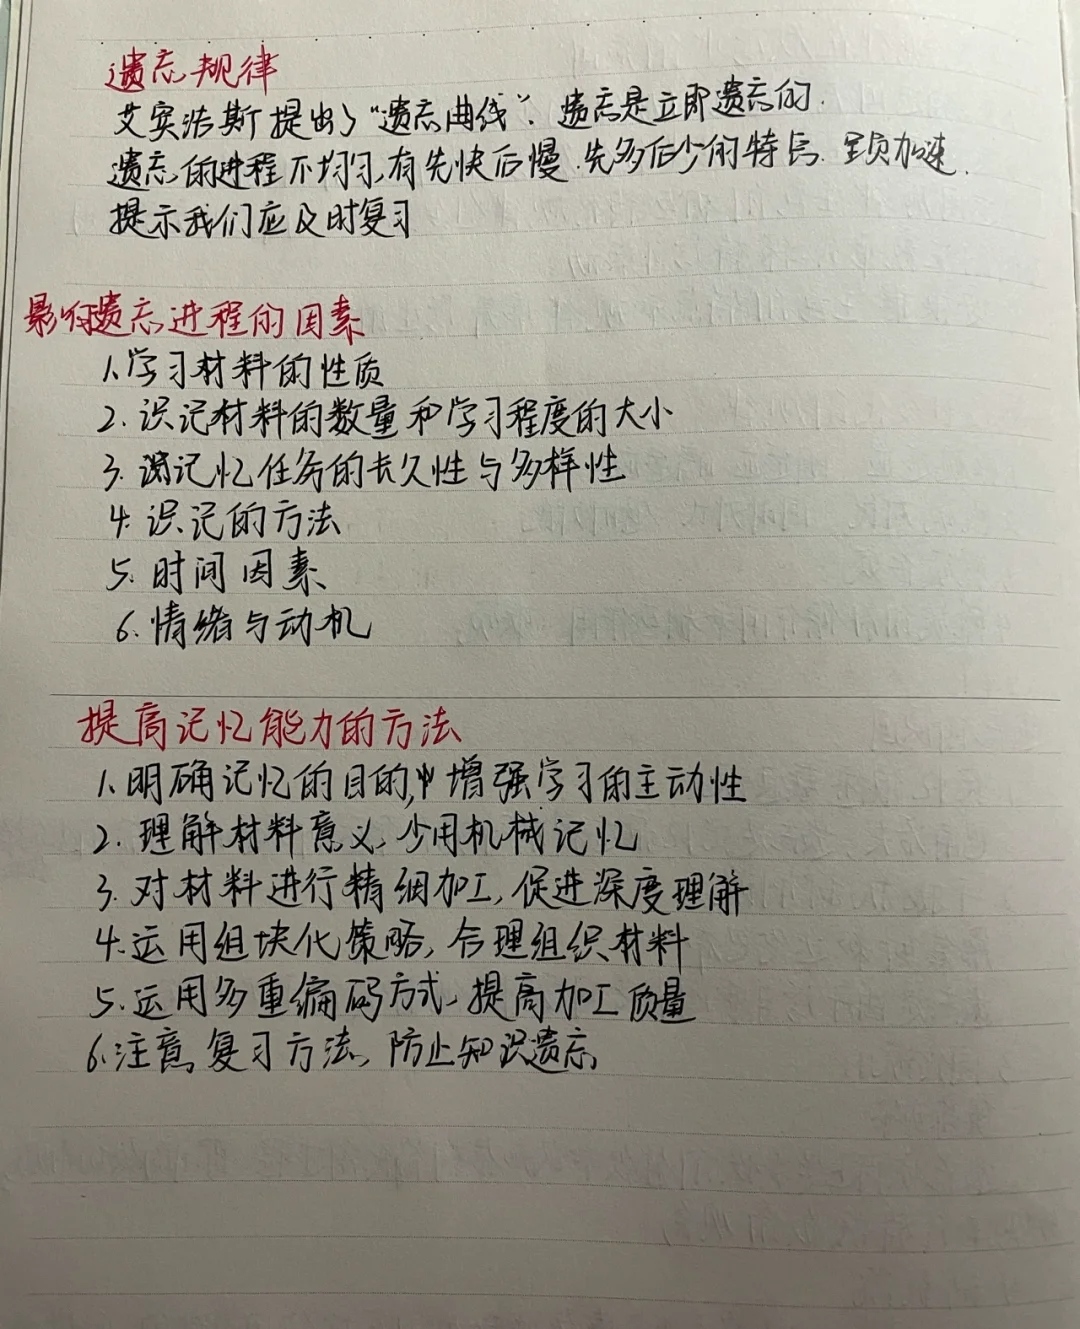 遗忘规律
艾宾浩斯提出了“遗忘曲线”、遗忘是立即遗忘的.
遗忘的进程不均匀,有先快后慢.先多后少的特点.呈负加速.
提示我们应及时复习
影响遗忘进程的因素
1.学习材料的性质
2.识记材料的数量和学习程度的大小
3.记忆任务的长久性与多样性
4.识记的方法
5.时间因素
6.情绪与动机
提高记忆能力的方法
1.明确记忆的目的,增强学习的主动性
2.理解材料意义,少用机械记忆
3.对材料进行精细加工,促进深度理解
4.运用组块化策略,合理组织材料
5.运用多重编码方式,提高加工质量
6.注意复习方法,防止知识遗忘